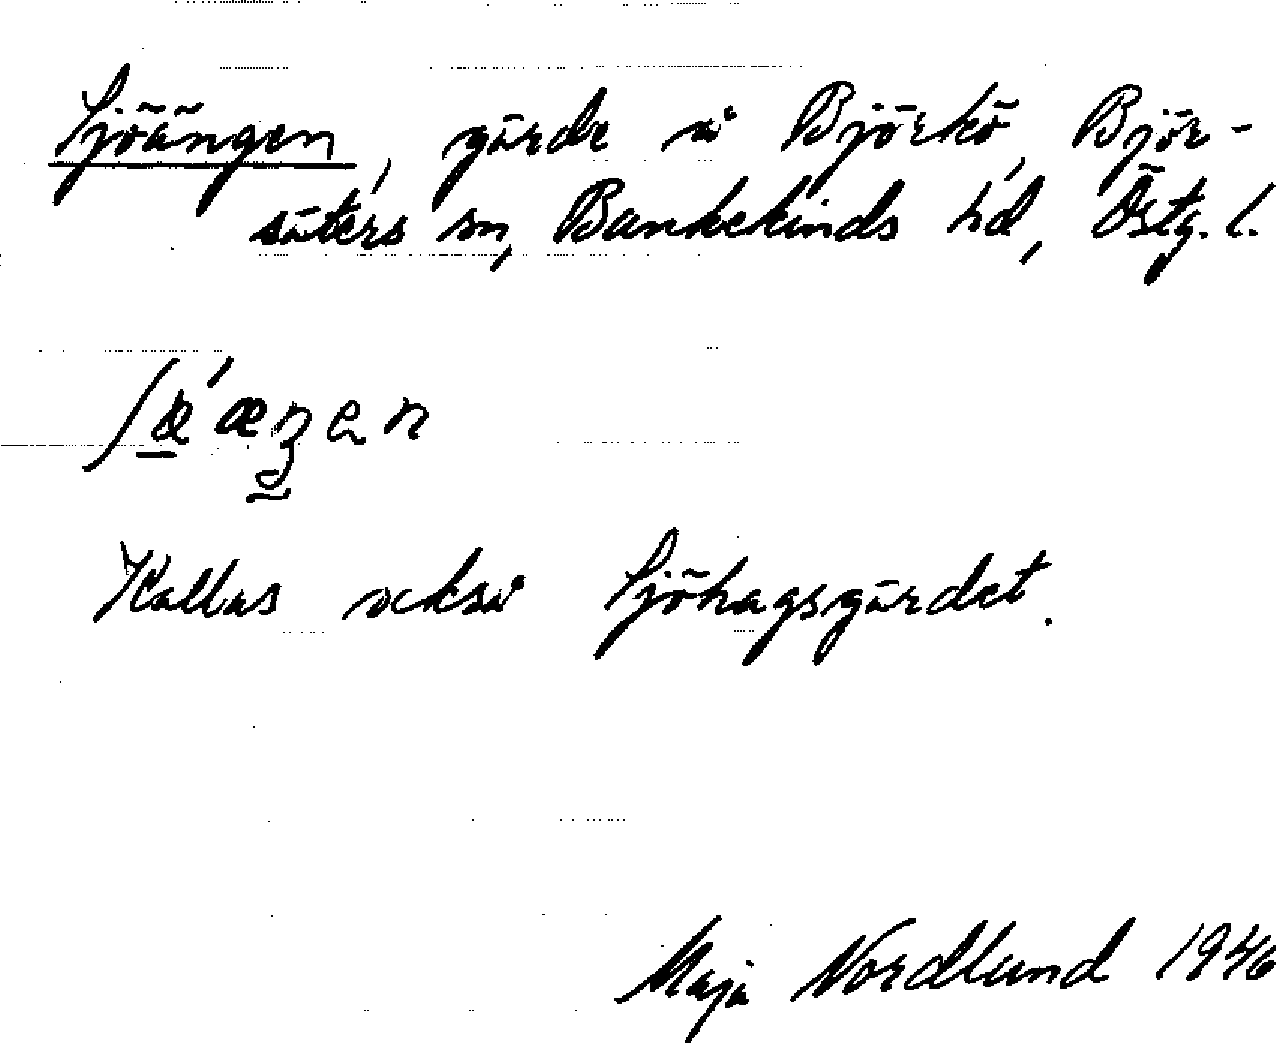 Sjöängen, gärde å Björkö, Björ-
säters sn, Bankekinds hd, Östg. l.
Kallas också Sjöhagsgärdet.
Maja Nordlund 1946